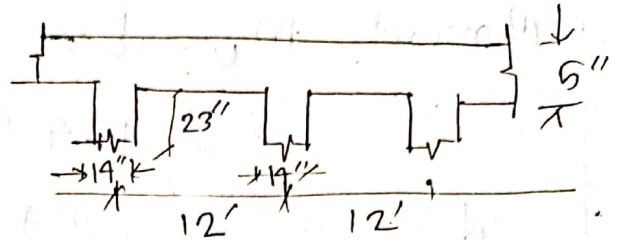 5"
23"
14" 14"
12' 12'